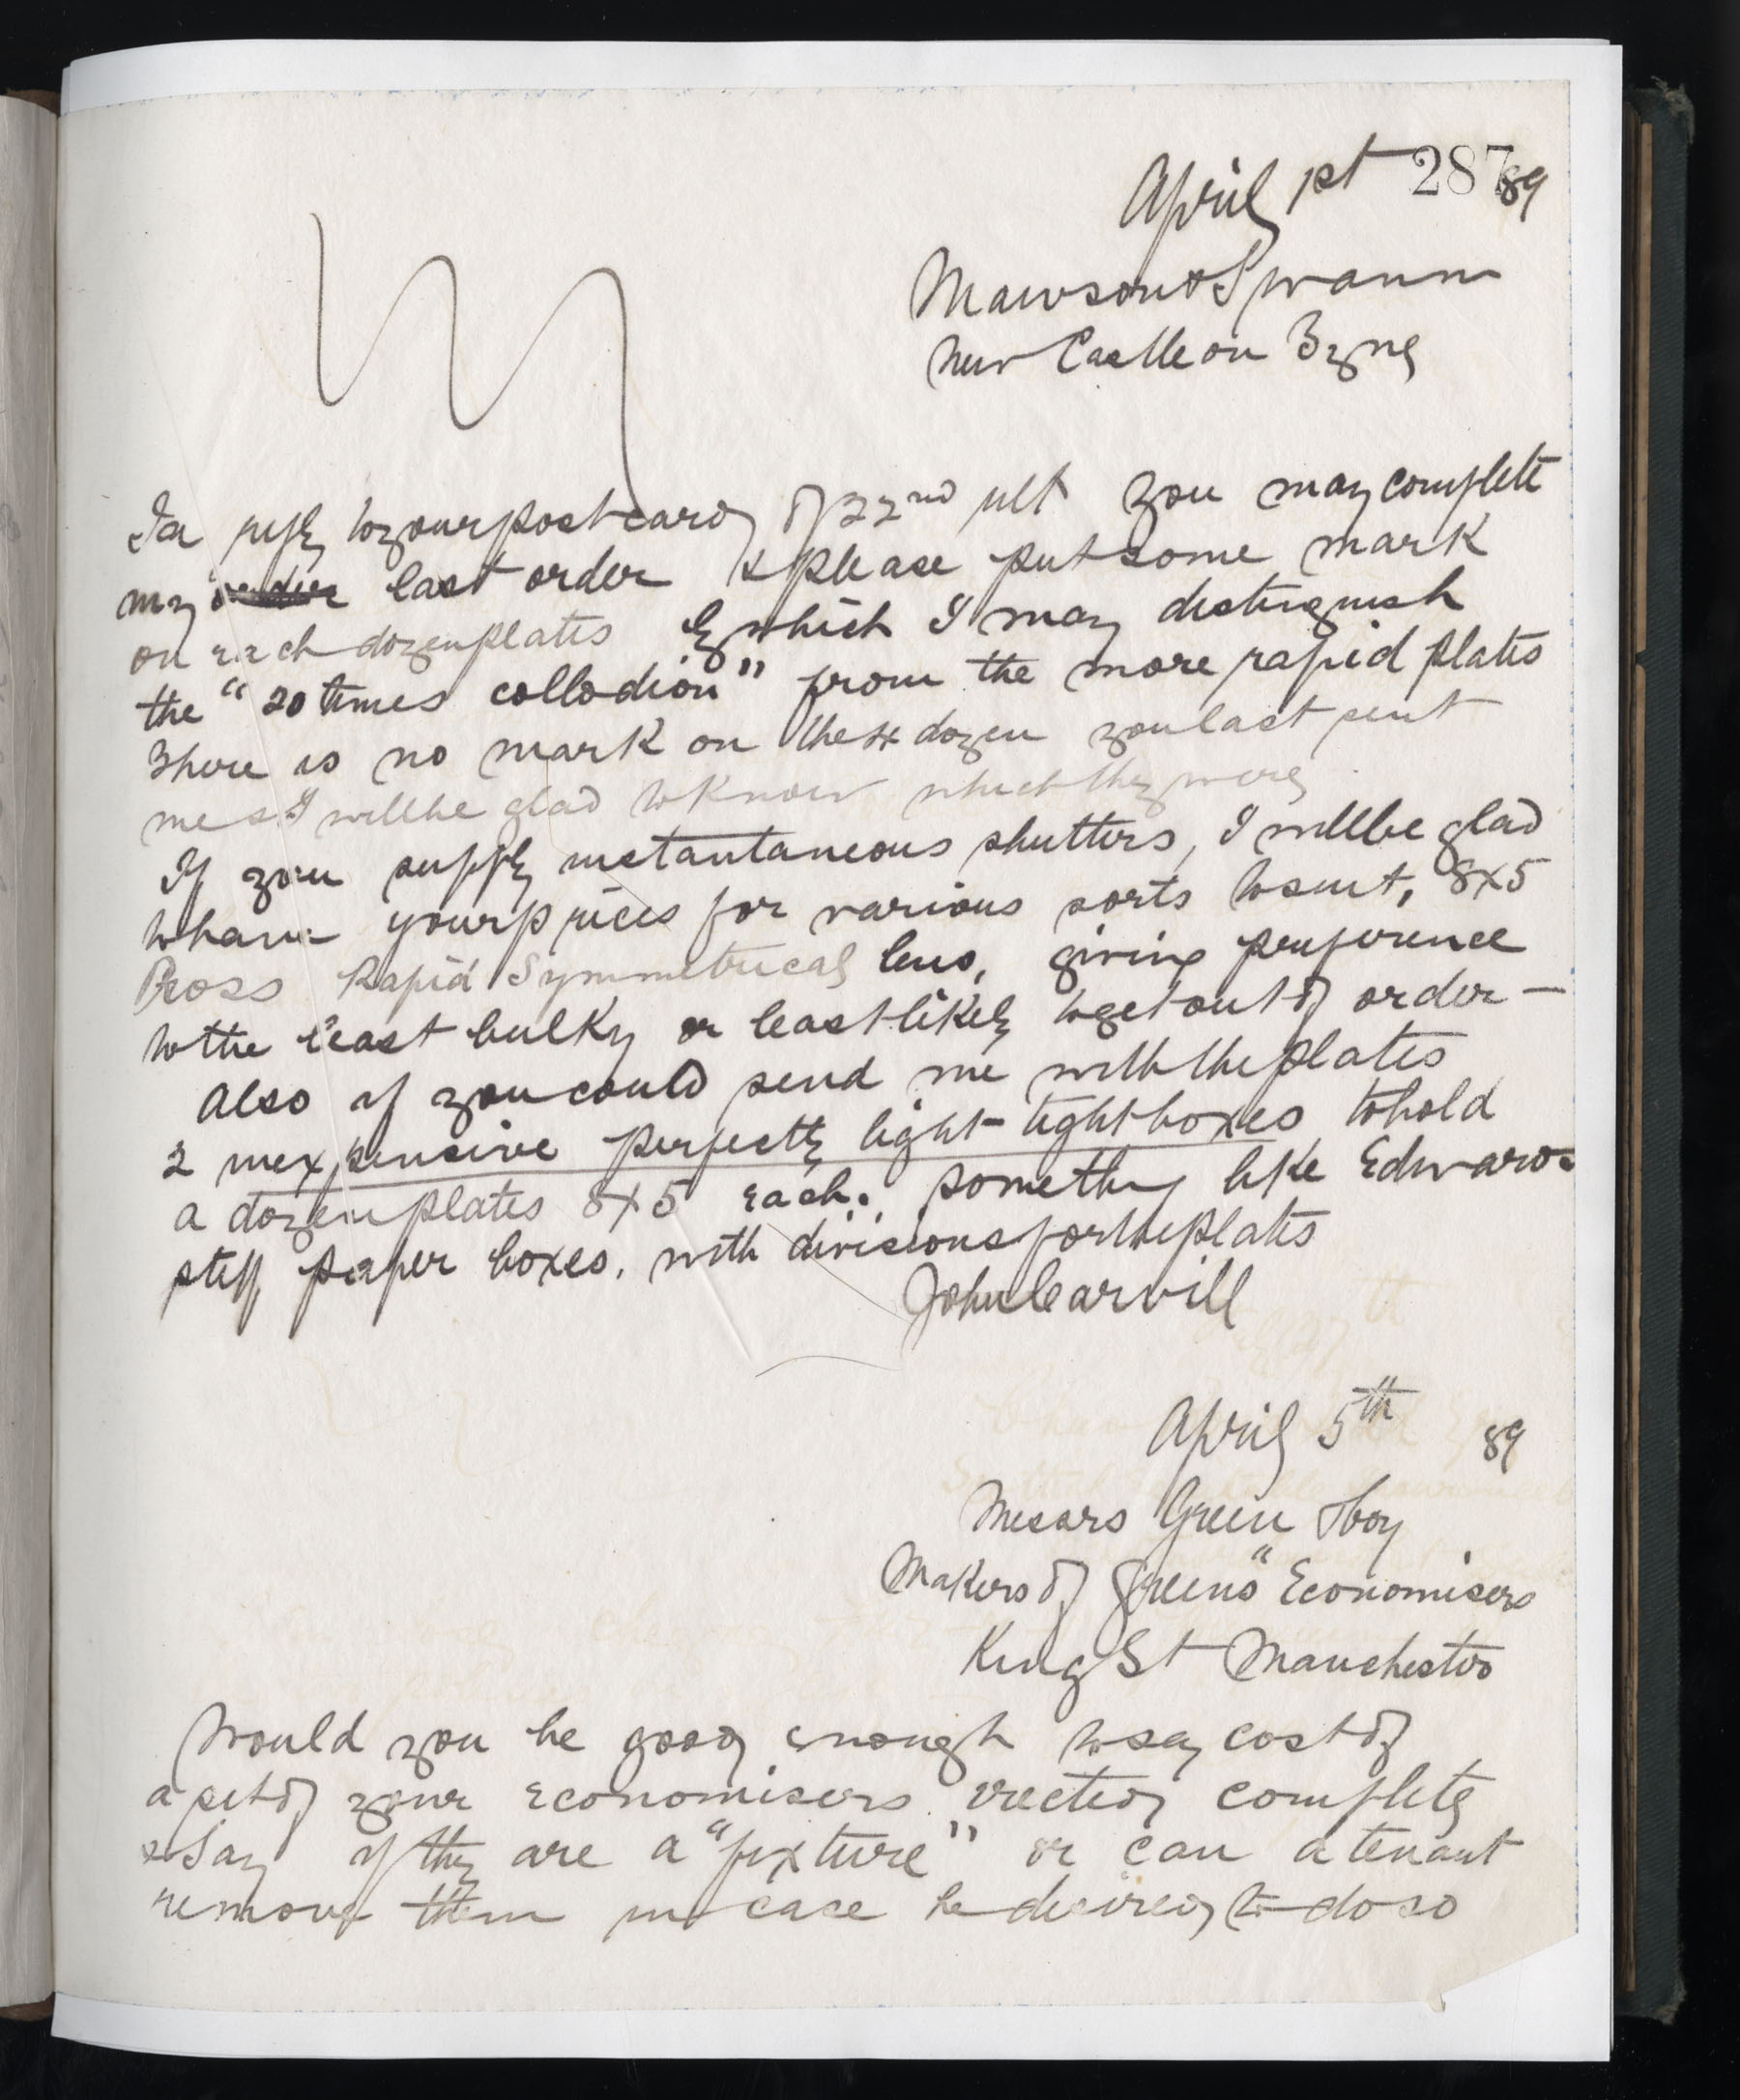 287
April 1st 89
Mawson & Swann
New Castle on Tyne
In reply to your postcard of 22nd ult you may complete
my order last order & please put some mark
on each dozen plates by which I may distinguish
the "20 times collodion" from the more rapid plates
There is no mark on the dozen you last sent
me & I will be glad to know which they were
If you supply instantaneous shutters, I will be glad
to have your prices for various sorts to suit, 8x5
Ross Rapid Symmetrical lens, giving preference
to the least bulky or least likely to get out of order —
Also if you could send me with the plates
2 inexpensive perfectly light-tight boxes to hold
a dozen plates 8x5 each. something like Edwards
stiff paper boxes, with divisions for the plates
John Carvill
April 5th 89
Messrs Green
Makers of Greens "Economisers
King St Manchester
Would you be good enough to say cost of
a set of your economisers erected complete
& say if they are a "fixture" or can a tenant
remove them in case he desired to do so